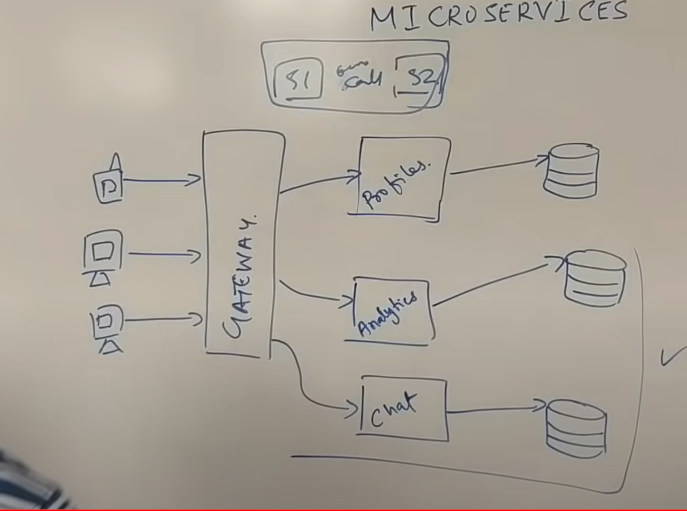 MICROSERVICES
S1 call S2
GATEWAY.
Profiles.
Analytics
Chat